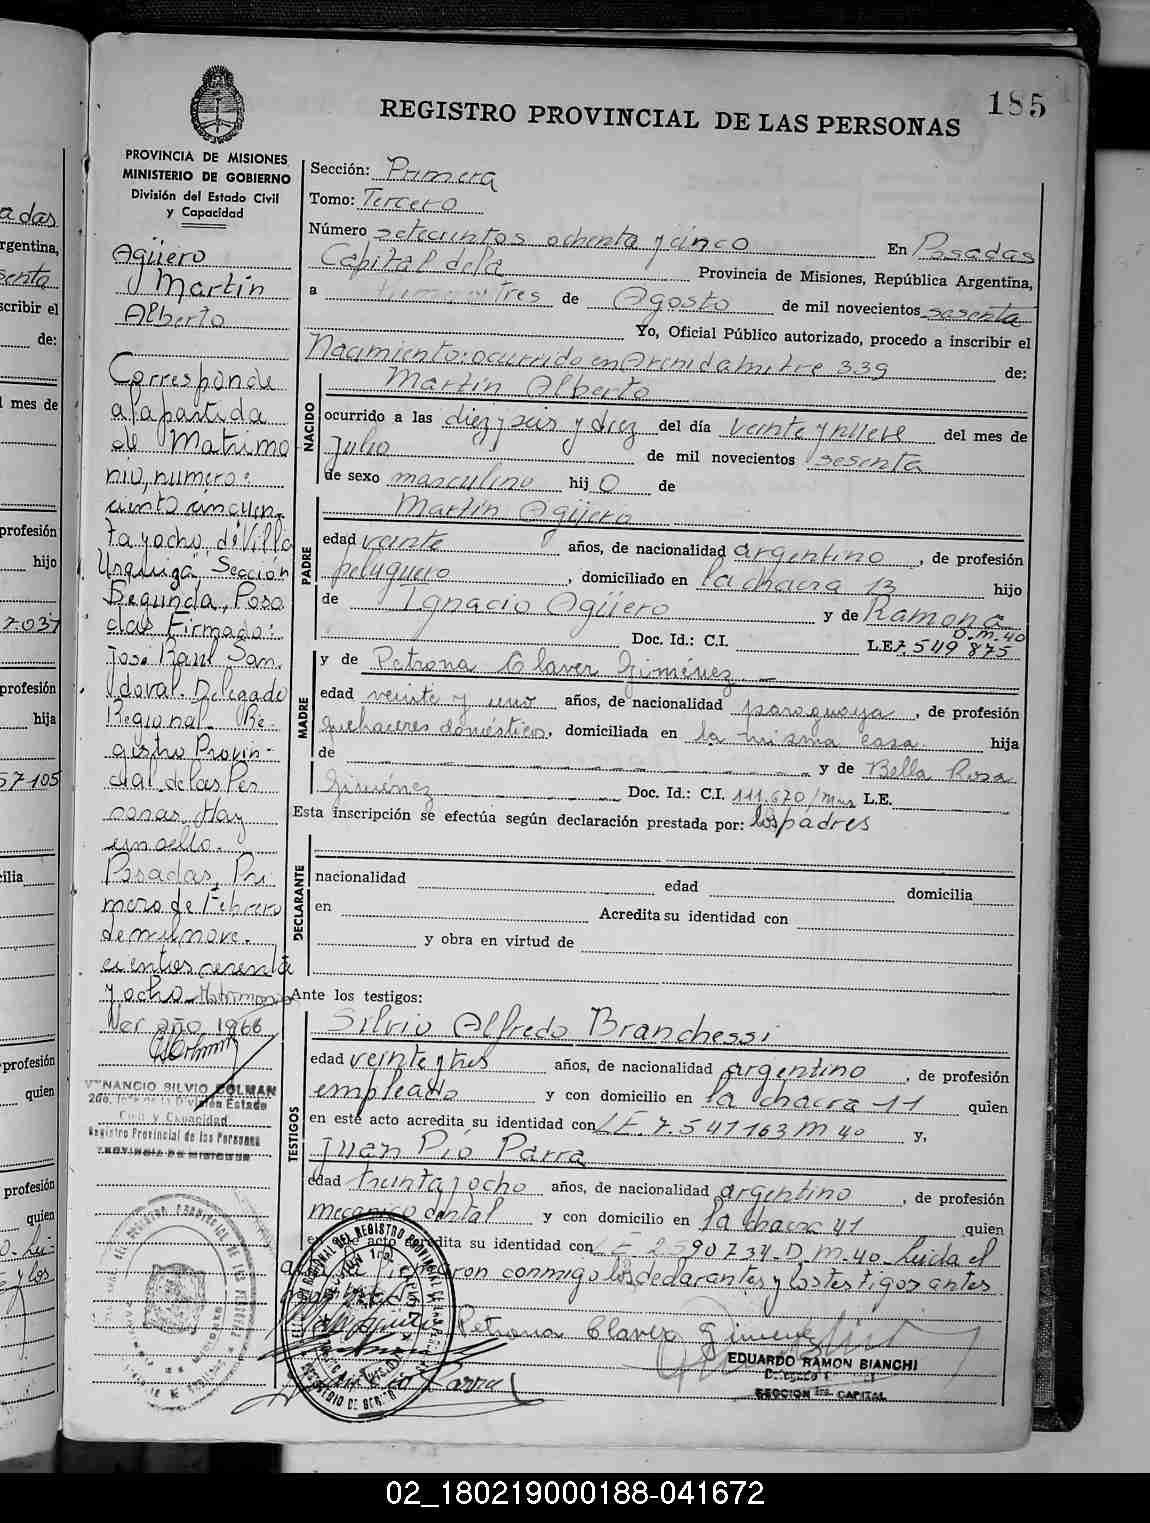 185
REGISTRO PROVINCIAL DE LAS PERSONAS
PROVINCIA DE MISIONES
MINISTERIO DE GOBIERNO
División del Estado Civil
y Capacidad
Agüero
Martin
Alberto
Corresponde
a la partida
de Matrimo
nio, numero:
ciento cincuen-
ta y ocho de Villa
Urquiza, Sección
Segunda, Posa
das Firmado:
José Raúl San-
doval. Delegado
Regional. Re-
gistro Provin-
cial de las Per
sonas. Hay
un sello.
Posadas, Pri
mero de Febrero
de mil nove-
cientos sesenta
y ocho - Matrimonio
Ver año 1966
VENANCIO SILVIO COLMAN
2do. Jefe de la División Estado
Civil y Capacidad
Registro Provincial de las Personas
PROVINCIA DE MISIONES
Sección: Primera
Tomo: Tercero
Número setecientos ochenta y cinco En Posadas
Capital de la Provincia de Misiones, República Argentina,
a tres de Agosto de mil novecientos sesenta
Yo, Oficial Público autorizado, procedo a inscribir el
Nacimiento: ocurrido en Avenida Mitre 339 de:
NACIDO
Martín Alberto
ocurrido a las diez y seis y diez del día veinte y nueve del mes de
Julio de mil novecientos sesenta
de sexo masculino hijo de
PADRE
Martín Agüero
edad veinte años, de nacionalidad argentino, de profesión
peluquero, domiciliado en la chacra 13 hijo
de Ignacio Agüero y de Ramona
Doc. Id.: C.I. L.E. 7.549.875 D.M.40
MADRE
y de Petrona Claver Giménez
edad veinte y uno años, de nacionalidad paraguaya, de profesión
quehaceres domésticos, domiciliada en la misma casa hija
de y de Bella Rosa
Giménez Doc. Id.: C.I. 111.670/Mnes L.E.
Esta inscripción se efectúa según declaración prestada por: los padres
DECLARANTE
nacionalidad edad domicilia
en Acredita su identidad con
y obra en virtud de
Ante los testigos:
TESTIGOS
Silvio Alfredo Branchessi
edad veinte y tres años, de nacionalidad argentino, de profesión
empleado y con domicilio en la chacra 11 quien
en este acto acredita su identidad con L.E. 7.541163 M 40 y,
Juan Pío Parra
edad treinta y ocho años, de nacionalidad argentino, de profesión
mecanico dental y con domicilio en la chacra 41 quien
acto acredita su identidad con L.E. 2590734. D.M.40 Leida el
conmigo los declarantes y los testigos antes
Petrona Claver Gimenez
EDUARDO RAMON BIANCHI
SECCION 1ra. CAPITAL
adas
rgentina,
senta
scribir el
de:
l mes de
profesión
hijo
7.037
profesión
hija
57105
cilia
profesión
quien
profesión
quien
y los
02_180219000188-041672